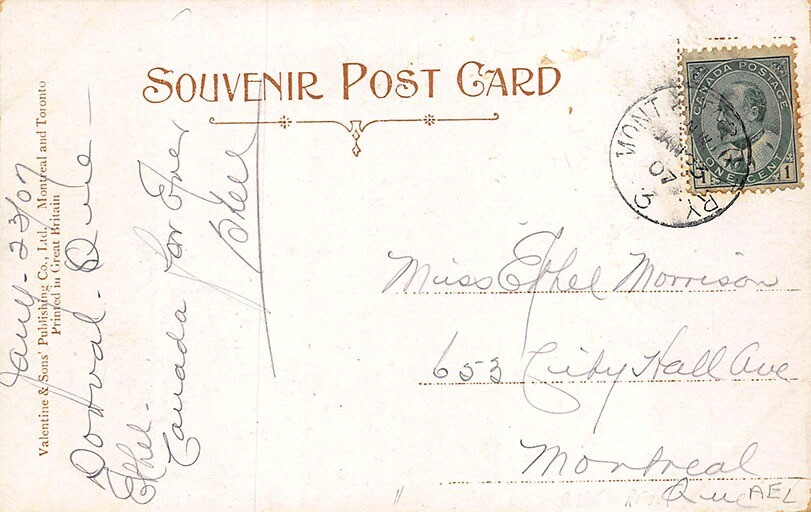 SOUVENIR POST CARD
Valentine & Sons' Publishing Co., Ltd., Montreal and Toronto
Printed in Great Britain
Jany - 23/07
Dorval - Que -
Ethel -
Canada for Ever
CANADA POSTAGE
ONE CENT
1
MONT
RY.
07
Miss Ethel Morrison
653 City Hall Ave
Montreal
Que
AEL